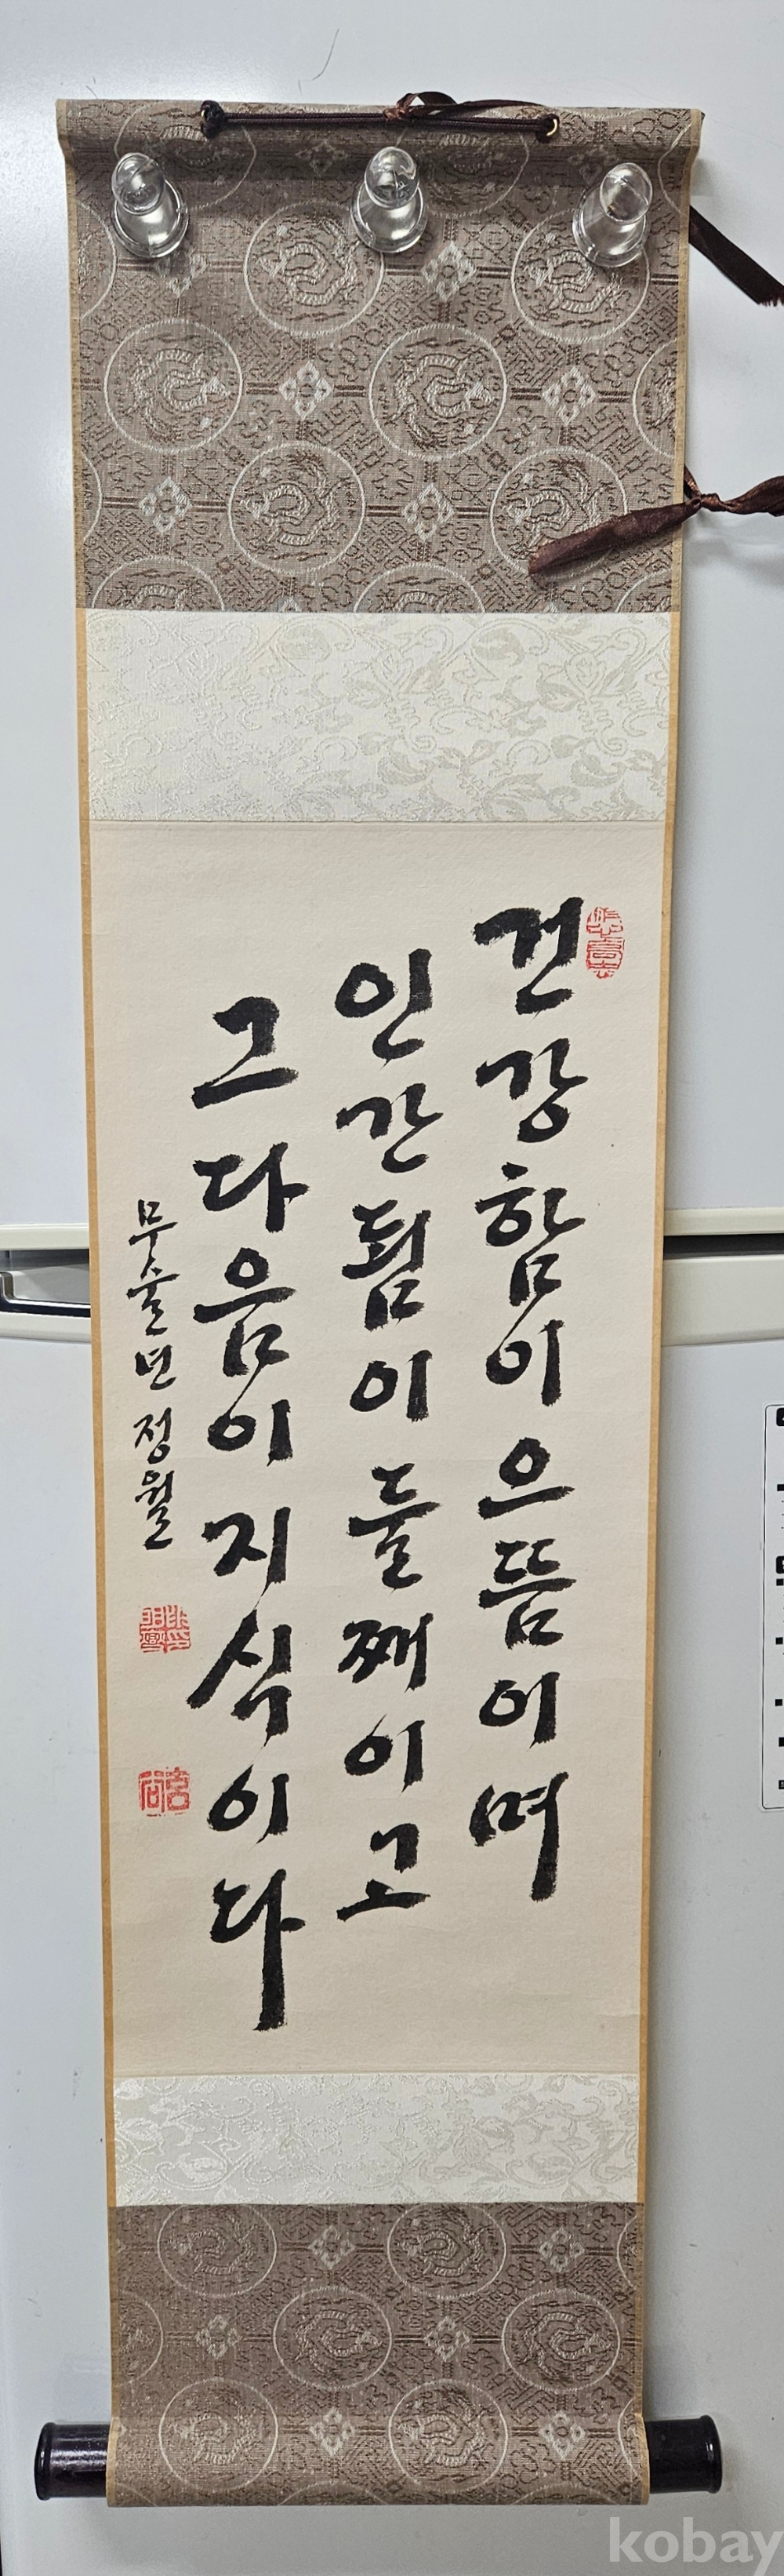 건강함이으뜸이며
인간됨이둘째이고
그다음이지식이다
무술년정월
kobay